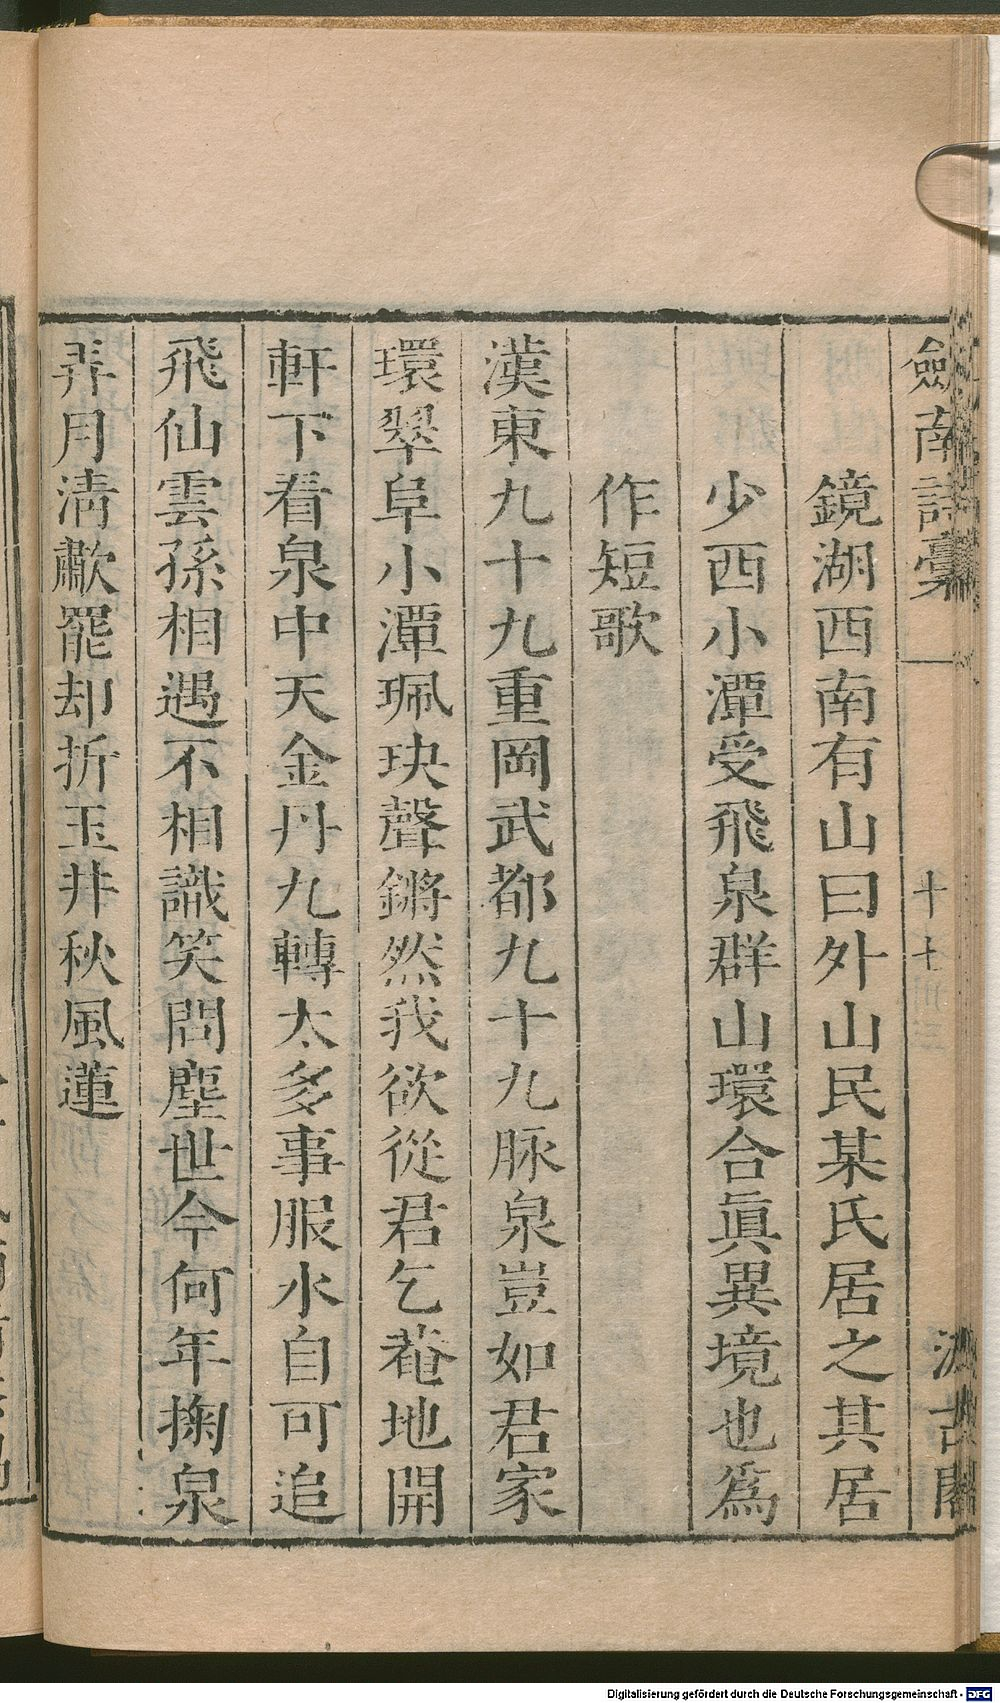 劍南詩稾
鏡湖西南有山曰外山民某氏居之其居
少西小潭受飛泉群山環合眞異境也爲
作短歌
漢東九十九重岡武都九十九脉泉豈如君家
環翠阜小潭珮玦聲鏘然我欲從君乞菴地開
軒下看泉中天金丹九轉太多事服水自可追
飛仙雲孫相遇不相識笑問塵世今何年掬泉
弄月淸歗罷却折玉井秋風蓮
汲古閣
Digitalisierung gefördert durch die Deutsche Forschungsgemeinschaft - DFG